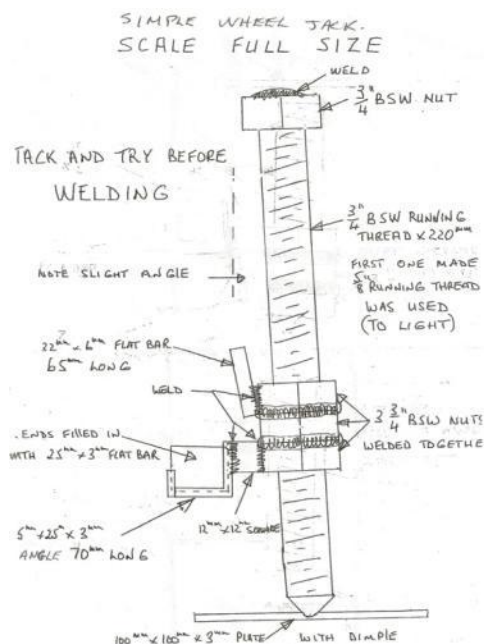 SIMPLE WHEEL JACK.
SCALE FULL SIZE
WELD
3/4" BSW NUT
TACK AND TRY BEFORE
WELDING
3/4" BSW RUNNING
THREAD x 220mm
NOTE SLIGHT ANGLE
FIRST ONE MADE
5/8" RUNNING THREAD
WAS USED
(TO LIGHT)
22mm x 6mm FLAT BAR
65mm LONG
WELD
3 3/4" BSW NUTS
WELDED TOGETHE
.ENDS FILLED IN
WITH 25mm x 3mm FLAT BAR
12mm x 12mm SQUARE
5mm x 25m x 3mm
ANGLE 70mm LONG
100mm x 100mm x 3mm PLATE WITH DIMPLE